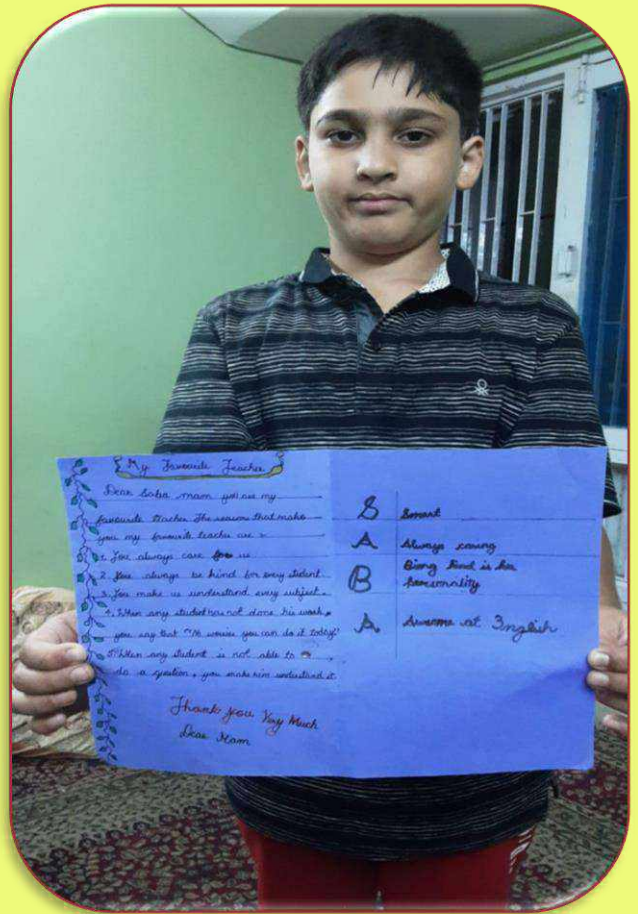 My Favourite Teacher
Dear Saba mam you are my
favourite teacher. The reasons that make
you my favourite teacher are :-
1. You always care for us
2. You always be kind for every student.
3. You make us understand every subject.
4. When any student has not done his work,
you say that "No worries you can do it today."
5. When any student is not able to
do a question, you make him understand it.
Thank you Very Much
Dear Mam
S Smart
A Always caring
B Being kind is her
personality
A Awesome at English